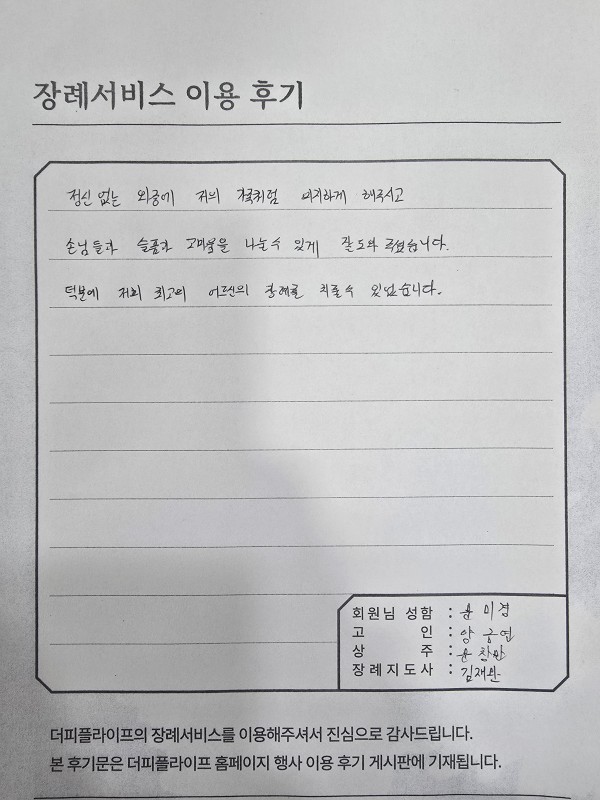 장례서비스 이용 후기
정신 없는 와중에 저의 가족처럼 해주시고
손님들과 슬픔과 고마움을 나눌 수 있게 잘 도와 주셨습니다.
덕분에 저희 최고의 어르신의 장례를 치를 수 있었습니다.
회원님 성함 : 윤미경
고 인 : 양
상 주 : 윤창만
장례지도사 : 김재환
더피플라이프의 장례서비스를 이용해주셔서 진심으로 감사드립니다.
본 후기문은 더피플라이프 홈페이지 행사 이용 후기 게시판에 기재됩니다.